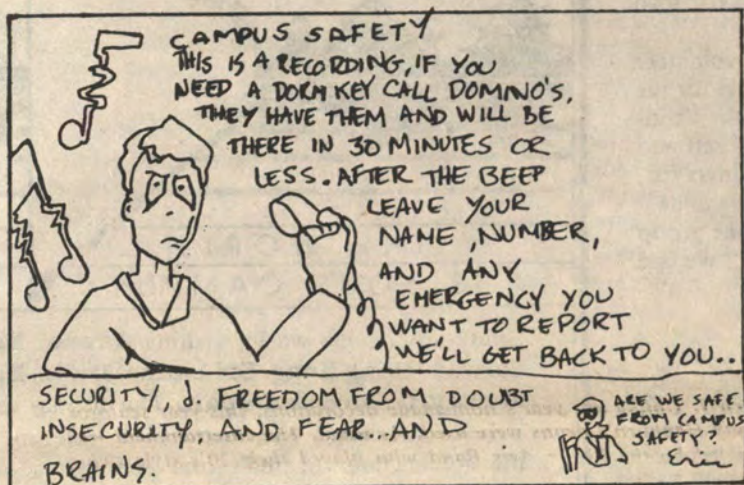 CAMPUS SAFETY
THIS IS A RECORDING, IF YOU
NEED A DORM KEY CALL DOMINO'S.
THEY HAVE THEM AND WILL BE
THERE IN 30 MINUTES OR
LESS. AFTER THE BEEP
LEAVE YOUR
NAME, NUMBER,
AND ANY
EMERGENCY YOU
WANT TO REPORT
WE'LL GET BACK TO YOU..
SECURITY, d. FREEDOM FROM DOUBT
INSECURITY, AND FEAR...AND
BRAINS.
ARE WE SAFE
FROM CAMPUS
SAFETY?
Eric